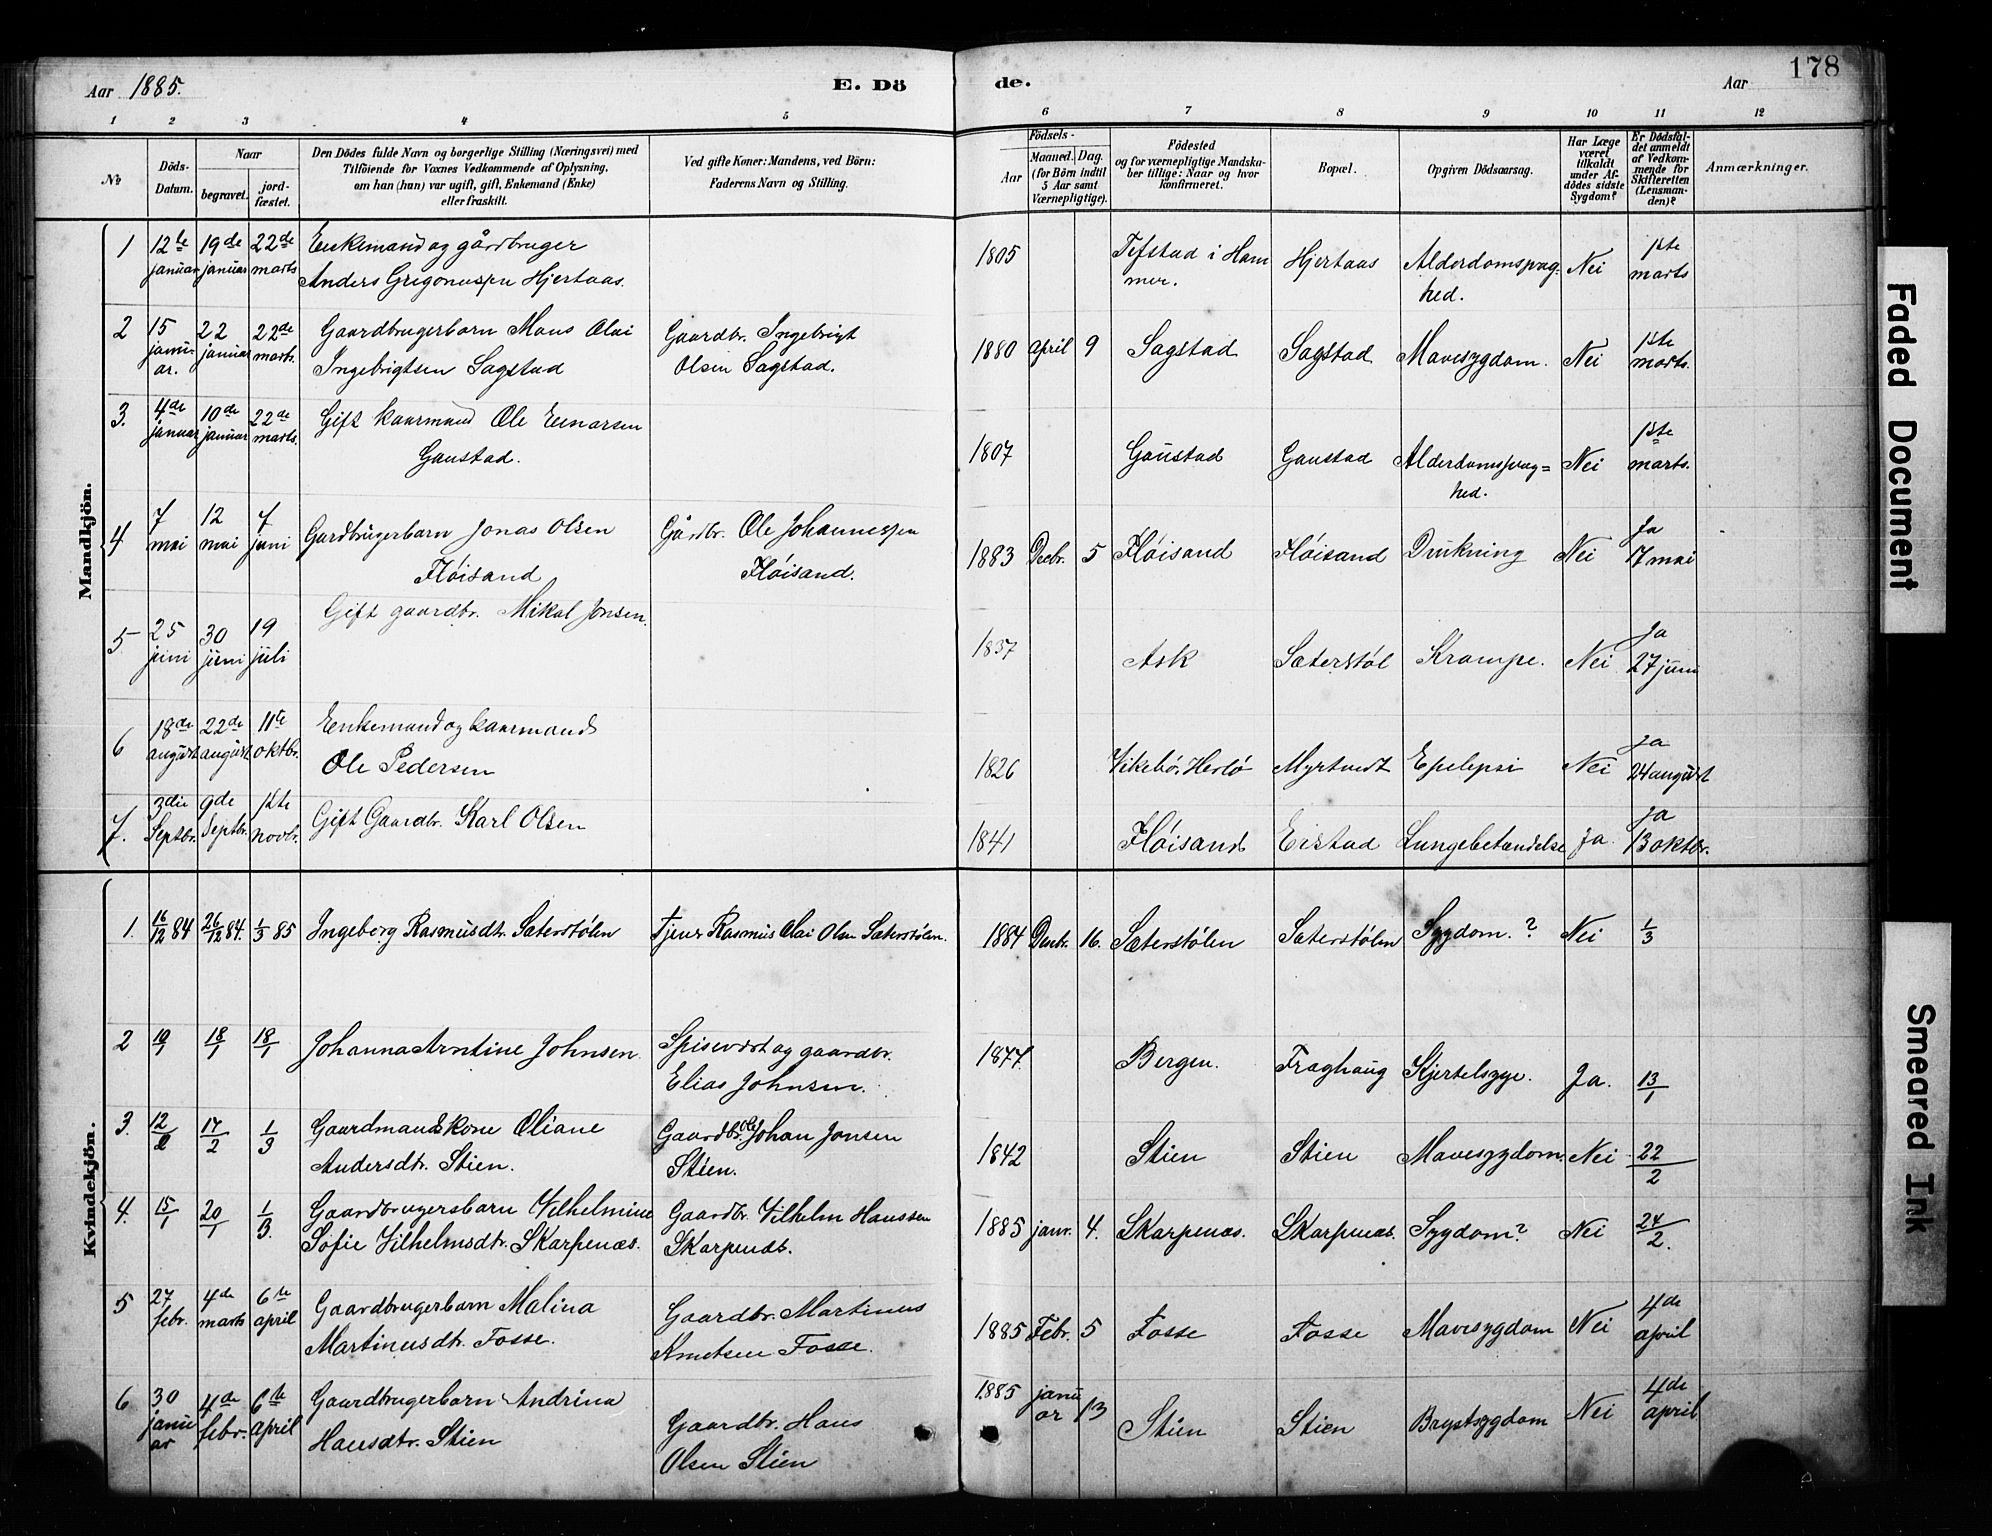 Aar 1885.
E. Dö
de.
Aar
178
1 2 3 4 5 6 7 8 9 10 11 12
No
Döds-Datum.
Naar
begravet.
jord-fæstet.
Den Dödes fulde Navn og borgerlige Stilling (Næringsvei) med
Tilföiende for Voxnes Vedkommende af Oplysning,
om han (hun) var ugift, gift, Enkemand (Enke)
eller fraskilt.
Ved gifte Koner: Mandens, ved Börn:
Faderens Navn og Stilling.
Födsels-
Aar
Maaned. Dag.
(for Börn indtil
5 Aar samt
Værnepligtige).
Födested
og for værnepligtige Mandska-
ber tillige: Naar og hvor
konfirmeret.
Bopæl.
Opgiven Dödsaarsag.
Har Læge
været
tilkaldt
under Af-
dödes sidste
Sygdom?
Er Dödsfal-
det anmeldt
af Vedkom-
mende for
Skifteretten
(Lensman-
den)?
Anmærkninger.
Mandkjön.
1 12te januar 19de januar 22de marts Enkemand og gårdbruger
Anders Gregoriussen Hjertaas. 1805 i Ham
mer. Hjertaas Alderdomssvag-
hed. Nei 1ste marts
2 15 janu-
ar. 22 januar 22de marts. Gaardbrugerbarn Mons Olai
Ingebrigtsen Sagstad Gaardbr. Ingebrigt
Olsen Sagstad. 1880 april 9 Sagstad Sagstad Mavesygdom. Nei 1ste marts.
3. 4de januar 10de januar 22de marts. Gift kaarmand Ole Einarsen
Gaustad. 1807 Gaustad Gaustad Alderdomssvag=
hed. Nei 1ste marts.
4 7 mai 12 mai 7 juni Gardbrugerbarn Jonas Olsen
Fløisand Gårdbr. Ole Johannessen
Fløisand. 1883 Decbr. 5 Fløisand Fløisand Drukning Nei Ja
17 mai
5 25 juni 30 juni 19 juli Gift gaardbr. Mikal Jonsen. 1837 Ask Sæterstøl Krampe. Nei Ja
27 juni
6 18de august 22de august 11te oktbr. Enkemand og kaarmand
Ole Pedersen 1826 Vikebø, Herlø Myrtvedt Epelepsi Nei Ja
24 august
7. 3die Septbr. 9de Septbr. 1ste novbr. Gift Gaardbr. Karl Olsen 1841 Fløisand Eistad Lungebetændelse Ja. Ja
13 oktbr.
Kvindekjön.
1. 16/12 84 26/12 84. 1/3 85 Ingeborg Rasmusdtr. Sæterstølen Tjener Rasmus Olai Olsen Sæterstølen. 1884 Decbr. 16. Sæterstølen Sæterstølen Sygdom.? Nei 1/3
2 10/1 18/1 18/1 Johanna Arntine Johnsen. Spisevært og gaardbr.
Elias Johnsen. 1877. Bergen. Fraghaug Kjertelsyge. Ja. 13/1
3. 12/2 17/2 1/3 Gaardmandskone Oliane
Andersdtr. Stien. Gaardbr. Ole Johan Jonsen
Stien. 1842 Stien Stien Mavesygdom. Nei 22/2
4. 15/1 20/1 1/3. Gaardbrugersbarn Vilhelmine
Sofie Vilhelmsdtr. Skarpenæs. Gaardbr. Vilhelm Hanssen
1885 janr. 4. Skarpenæs. Skarpenæs. Sygdom? Nei 24/2.
5 27 febr. 4de marts 6te april Gaardbrugerbarn Malina
Martinusdtr. Fosse. Gaardbr. Martinus
Knutsen Fosse. 1885 Febr. 5 Fosse Fosse Mavesygdom Nei 4de april
6 30 janu
ar 4de febr. 6te april Gaardbrugerbarn Andrina
Hansdtr. Stien Gaardbr. Hans
Olsen Stien 1885 janu
ar 13 Stien Stien Brystsygdom Nei 4de april
Faded Document
Smeared Ink